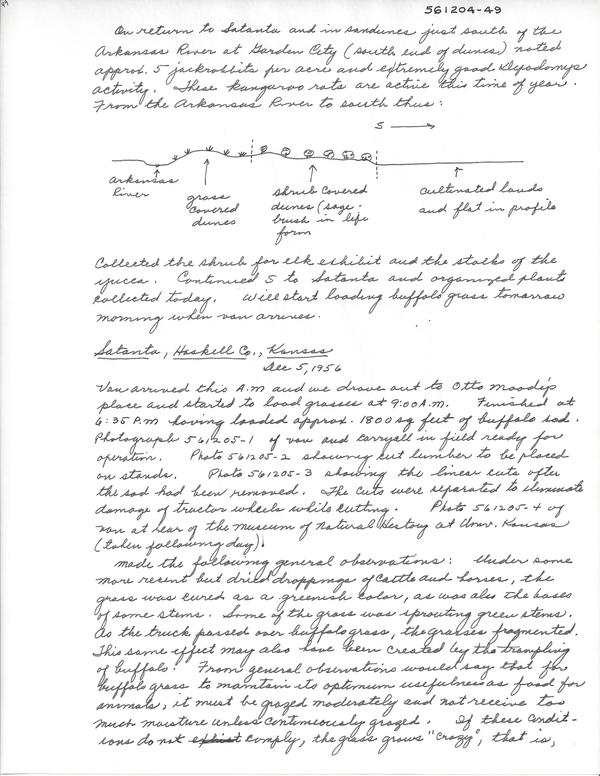 561204-49
On return to Satanta and in sandunes just south of the
Arkansas River at Garden City (south end of dunes) noted
approx. 5 jackrabbits per acre and extremely good Dipodomys
activity. These kangaroo rats are active this time of year.
From the Arkansas River to south thus:
S
Arkansas
River
grass
covered
dunes
shrub covered
dunes (sage-
brush in life
form
cultivated lands
and flat in profile
Collected the shrub for elk exhibit and the stalks of the
yucca. Continued S to Satanta and organized plants
collected today. Will start loading buffalo grass tomarrow
morning when van arrives.
Satanta, Haskell Co., Kansas
Dec 5, 1956
Van arrived this A.M and we drove out to Otto
place and started to load grasses at 9:00A.M. Finished at
6:35 P.M having loaded approx. 1800 sq feet of buffalo sod.
Photograph 561205-1 of van and carryall in field ready for
operation. Photo 561205-2 showing cut lumber to be placed
on stands. Photo 561205-3 showing the linear cuts after
the sod had been removed. The cuts were separated to eliminate
damage of tractor wheels while cutting. Photo 561205-4 of
van at rear of the Museum of Natural History at Univ. Kansas
(taken following day).
Made the following general observations: Under some
more recent but dried droppings of cattle and horses, the
grass was cured as a greenish color, as was also the bases
of some stems. Some of the grass was sprouting green stems.
As the truck passed over buffalo grass, the grasses fragmented.
This same effect may also have been created by the trampling
of buffalo. From general observations would say that for
buffalo grass to maintain its optimum usefulness as food for
animals, it must be grazed moderately and not receive too
much moisture unless continuously grazed. If these condit-
ions do not comply, the grass grows "crazy", that is,